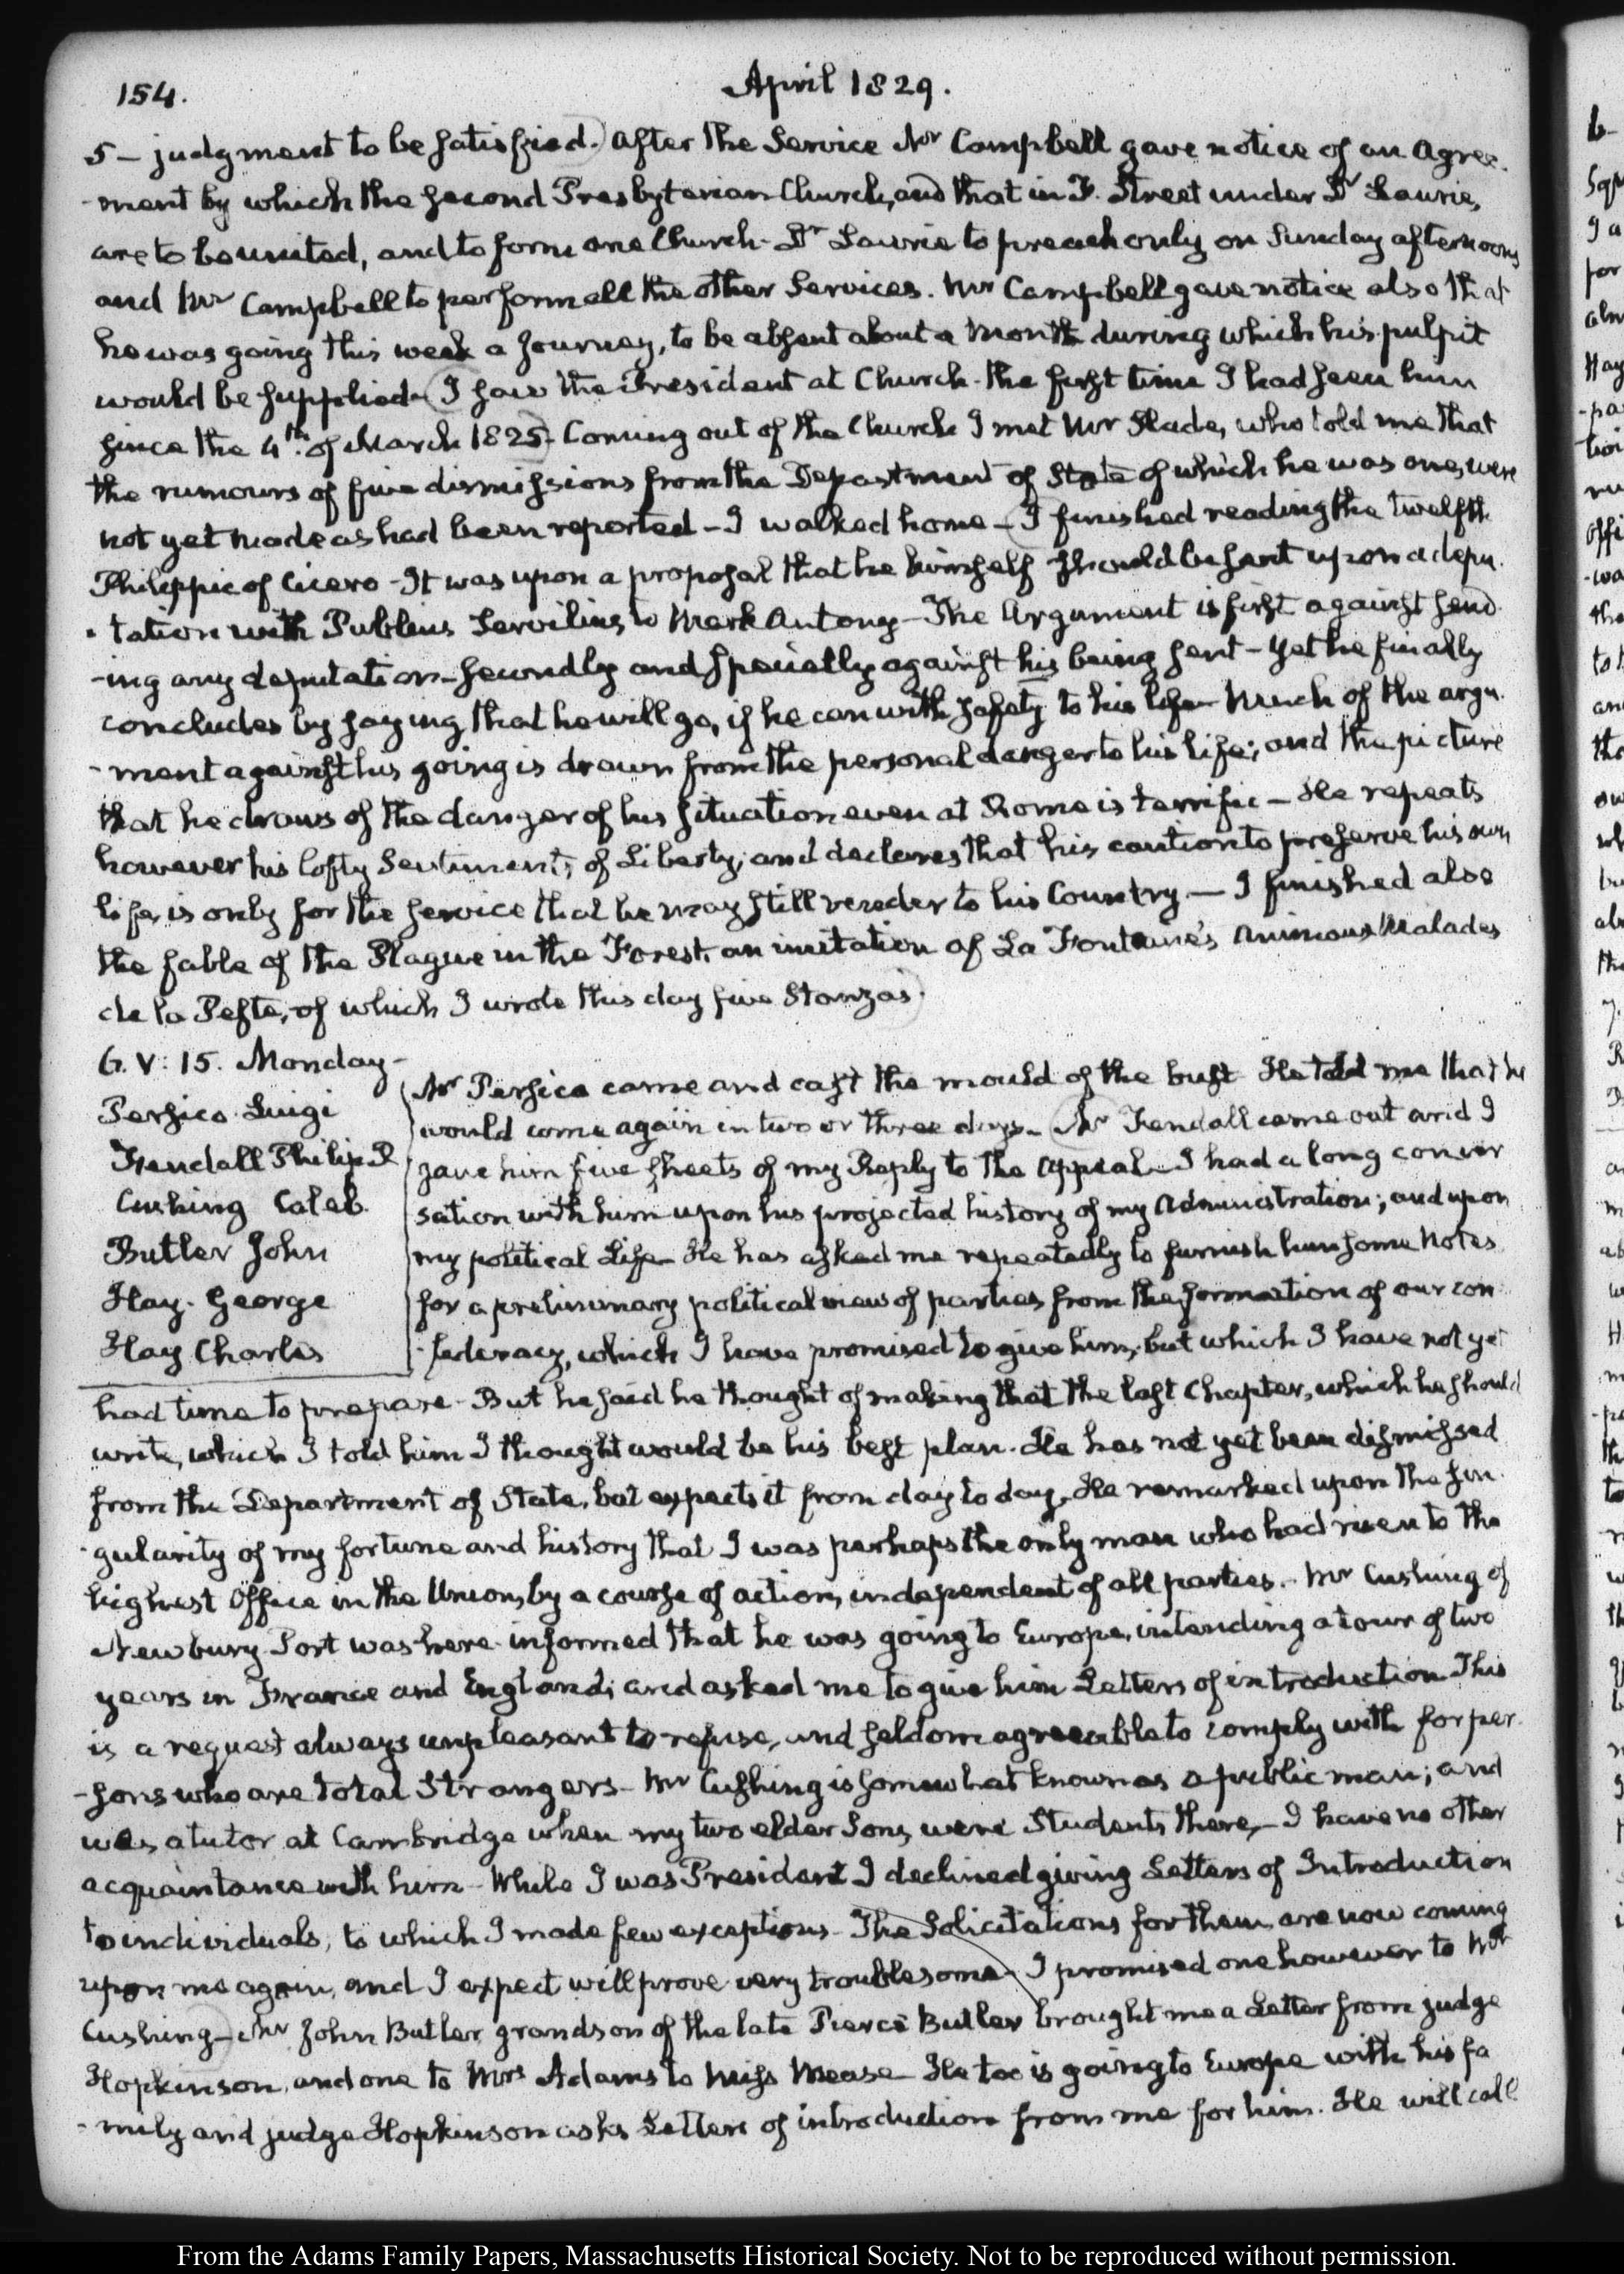 154.
April 1829.
5 — judgment to be satisfied. After the Service Mr Campbell gave notice of an Agree-
-ment by which the second Presbyterian Church, and that in F. Street under Dr Laurie,
are to be united, and to form one Church - Dr Laurie to preach only on Sunday afternoons
and Mr Campbell to perform all the other Services. Mr Campbell gave notice also that
he was going this week a Journey, to be absent about a Month during which his pulpit
would be supplied. I saw the President at Church - the first time I had seen him
since the 4th. of March 1825. Coming out of the Church I met Mr Slade, who told me that
the rumours of five dismissions from the Department of State of which he was one, were
not yet made as had been reported - I walked home - I finished reading the twelfth
Philippic of Cicero - It was upon a proposal that he himself should be sent upon a depu-
-tation with Publius Servilius to Mark Antony - The Argument is first against send-
-ing any deputation - secondly and specially against his being sent - Yet he finally
concludes by saying that he will go, if he can with safety to his life - Much of the argu-
-ment against his going is drawn from the personal danger to his life; and the picture
that he draws of the danger of his situation even at Rome is terrific - He repeats
however his lofty Sentiments of Liberty, and declares that his caution to preserve his own
life, is only for the service that he may still render to his Country — I finished also
the fable of the Plague in the Forest, an imitation of La Fontaine's Animaux Malades
de la Peste, of which I wrote this day five Stanzas.
6. V: 15. Monday -
Persico Luigi
Fendall Philip R
Cushing Caleb
Butler John
Hay. George
Hay Charles
Mr Persico came and cast the mould of the bust He told me that he
would come again in two or three days - Mr Fendall came out and I
gave him five sheets of my Reply to the Appeal - I had a long conver
sation with him upon his projected history of my Administration; and upon
my political Life - He has asked me repeatedly to furnish him some Notes
for a preliminary political view of parties from the formation of our con
-federacy, which I have promised to give him, but which I have not yet
had time to prepare - But he said he thought of making that the last Chapter, which he should
write, which I told him I thought would be his best plan. He has not yet been dismissed
from the Department of State, but expects it from day to day. He remarked upon the sin-
-gularity of my fortune and history that I was perhaps the only man who had risen to the
highest Office in the Union, by a course of action, independent of all parties. - Mr Cushing of
Newbury-Port was here - informed that he was going to Europe, intending a tour of two
years in France and England; and asked me to give him Letters of introduction This
is a request always unpleasant to refuse, and seldom agreeable to comply with for per-
-sons who are total Strangers - Mr Cushing is somewhat known as a public man; and
was a tutor at Cambridge when my two elder Sons were Students there, - I have no other
acquaintance with him - While I was President I declined giving Letters of Introduction
to individuals, to which I made few exceptions - The Solicitations for them are now coming
upon me again, and I expect will prove very troublesome - I promised one however to Mr
Cushing - Mr John Butler grandson of the late Pierce Butler brought me a Letter from judge
Hopkinson, and one to Mrs Adams to Miss Mease - He too is going to Europe with his fa
-mily and judge Hopkinson asks Letters of introduction from me for him. He will call
From the Adams Family Papers, Massachusetts Historical Society. Not to be reproduced without permission.